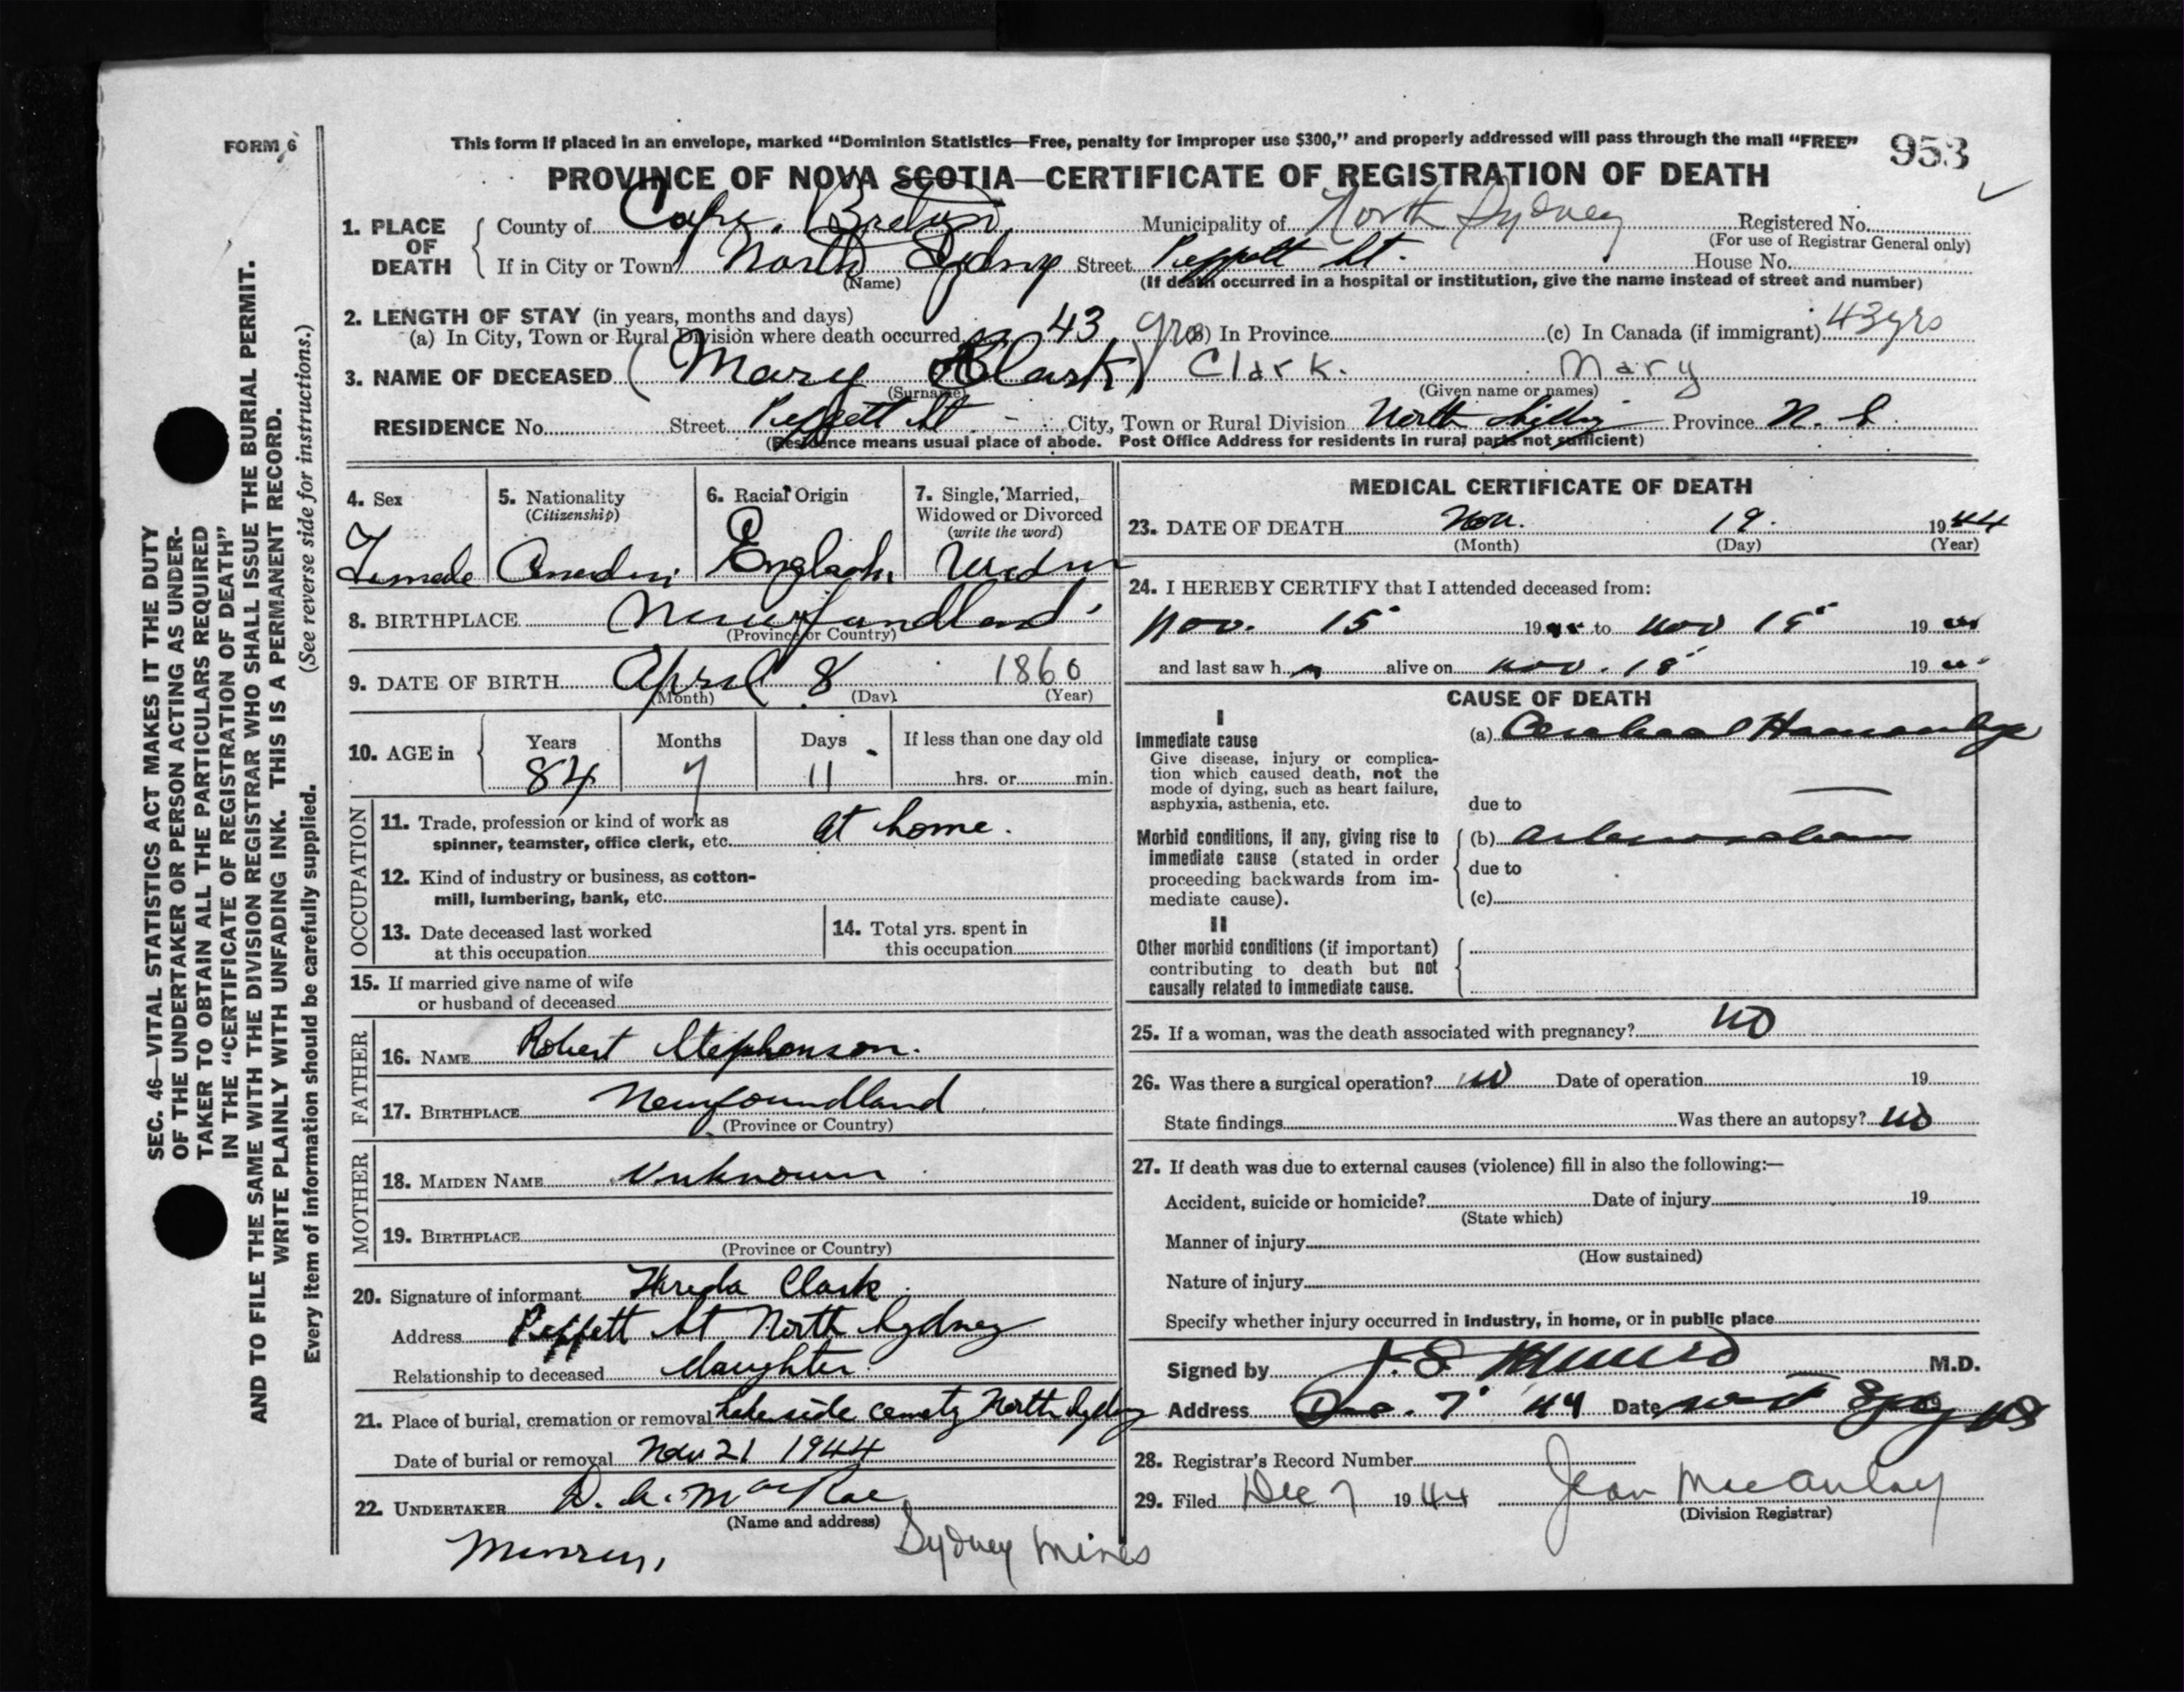 FORM 6
This form if placed in an envelope, marked “Dominion Statistics—Free, penalty for improper use $300,” and properly addressed will pass through the mail “FREE”
953
PROVINCE OF NOVA SCOTIA—CERTIFICATE OF REGISTRATION OF DEATH
1. PLACE OF DEATH
County of Cape Breton Municipality of North Sydney Registered No.
(For use of Registrar General only)
If in City or Town North Sydney Street Peppett St. House No.
(Name) (If death occurred in a hospital or institution, give the name instead of street and number)
2. LENGTH OF STAY (in years, months and days)
(a) In City, Town or Rural Division where death occurred 43 yrs (b) In Province (c) In Canada (if immigrant) 43 yrs
3. NAME OF DECEASED (Mary Clark) Clark. Mary
(Surname) (Given name or names)
RESIDENCE No. Street Peppett St - City, Town or Rural Division North Sydney Province N. S.
(Residence means usual place of abode. Post Office Address for residents in rural parts not sufficient)
4. Sex
Female
5. Nationality
(Citizenship)
Canadian
6. Racial Origin
English
7. Single, Married, Widowed or Divorced
(write the word)
Widow
8. BIRTHPLACE Newfoundland
(Province or Country)
9. DATE OF BIRTH April 8 1860
(Month) (Day) (Year)
10. AGE in Years Months Days If less than one day old
84 7 11 hrs. or min.
OCCUPATION
11. Trade, profession or kind of work as
spinner, teamster, office clerk, etc. at home.
12. Kind of industry or business, as cotton-
mill, lumbering, bank, etc.
13. Date deceased last worked
at this occupation
14. Total yrs. spent in
this occupation
15. If married give name of wife
or husband of deceased
FATHER
16. NAME Robert Stephenson.
17. BIRTHPLACE Newfoundland
(Province or Country)
MOTHER
18. MAIDEN NAME Unknown
19. BIRTHPLACE
(Province or Country)
20. Signature of informant Clark
Address Peppett St North Sydney
Relationship to deceased daughter
21. Place of burial, cremation or removal Lakeside North Sydney
Date of burial or removal Nov 21 1944
22. UNDERTAKER D. A. MacRae
(Name and address)
Sydney Mines
MEDICAL CERTIFICATE OF DEATH
23. DATE OF DEATH Nov. 19. 1944
(Month) (Day) (Year)
24. I HEREBY CERTIFY that I attended deceased from:
Nov. 15 19 to Nov 19
and last saw h alive on Nov. 18 19
CAUSE OF DEATH
I
Immediate cause
Give disease, injury or complica-
tion which caused death, not the
mode of dying, such as heart failure,
asphyxia, asthenia, etc.
(a) Cerebral Haemorrhage
due to
Morbid conditions, if any, giving rise to
immediate cause (stated in order
proceeding backwards from im-
mediate cause).
(b)
due to
(c)
II
Other morbid conditions (if important)
contributing to death but not
causally related to immediate cause.
25. If a woman, was the death associated with pregnancy? no
26. Was there a surgical operation? no Date of operation 19
State findings Was there an autopsy? no
27. If death was due to external causes (violence) fill in also the following:—
Accident, suicide or homicide? Date of injury 19
(State which)
Manner of injury
(How sustained)
Nature of injury
Specify whether injury occurred in industry, in home, or in public place
Signed by J. S. Munro M.D.
Address Dec. 7 '44 Date
28. Registrar's Record Number
29. Filed Dec 7 1944 Jean MacAulay
(Division Registrar)
SEC. 46—VITAL STATISTICS ACT MAKES IT THE DUTY
OF THE UNDERTAKER OR PERSON ACTING AS UNDER-
TAKER TO OBTAIN ALL THE PARTICULARS REQUIRED
IN THE “CERTIFICATE OF REGISTRATION OF DEATH”
AND TO FILE THE SAME WITH THE DIVISION REGISTRAR WHO SHALL ISSUE THE BURIAL PERMIT.
WRITE PLAINLY WITH UNFADING INK. THIS IS A PERMANENT RECORD.
Every item of information should be carefully supplied. (See reverse side for instructions.)